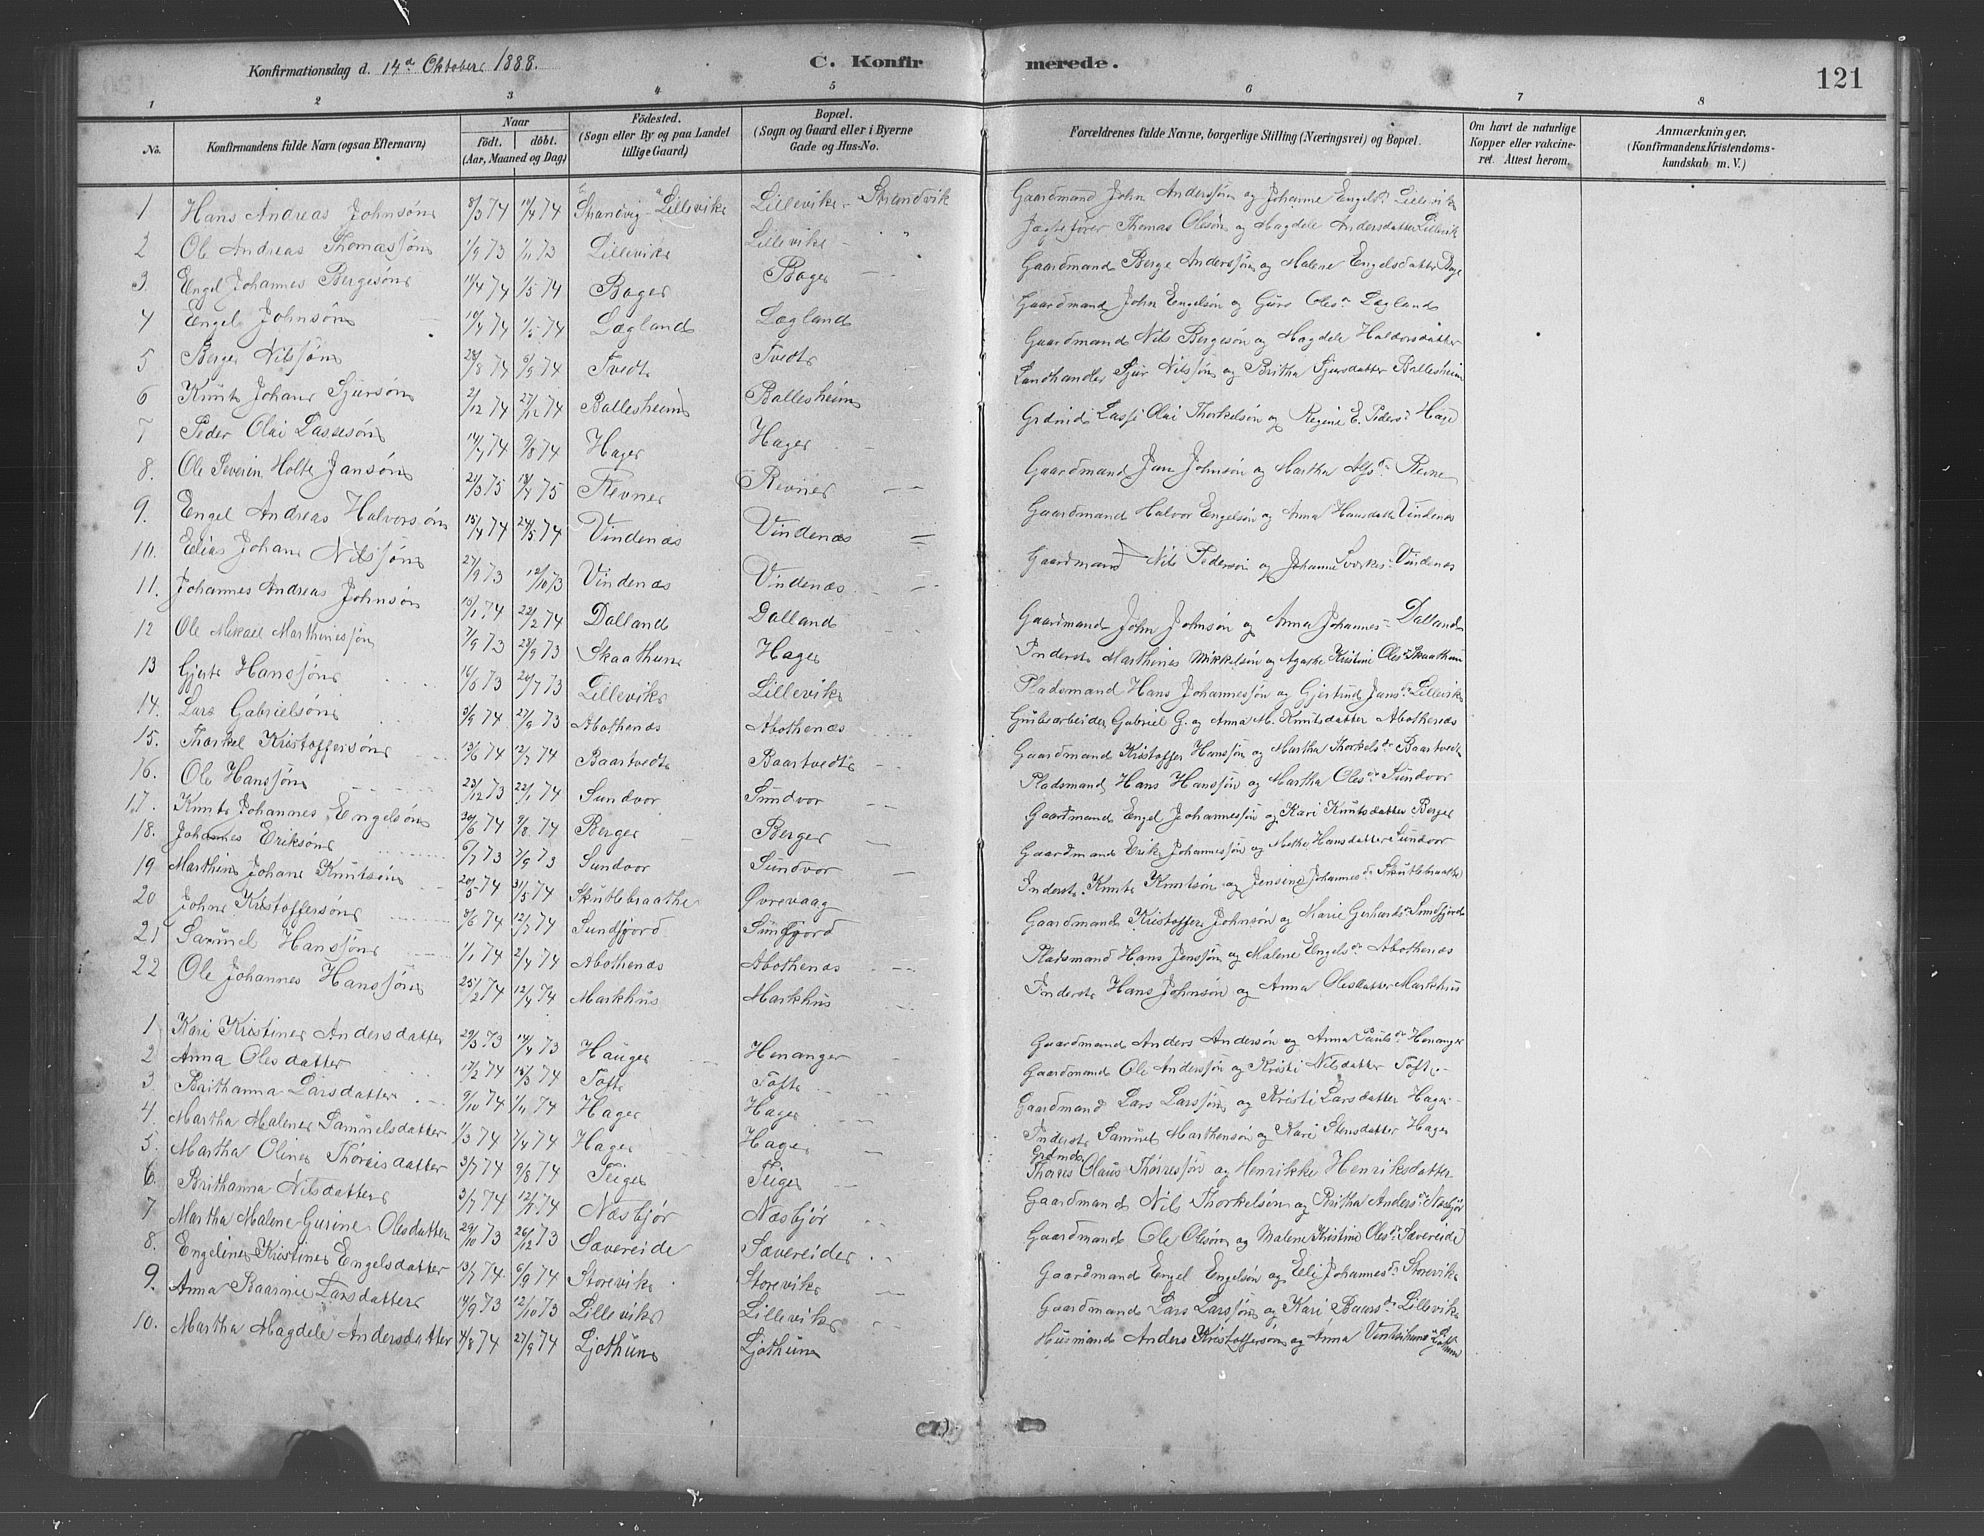 Konfirmationsdag d. 14de Oktober 1888. C. Konfirmerede. 121
1 2 3 4 5 6 7 8
No. Konfirmandens fulde Navn (ogsaa Efternavn) Naar födt. döbt. (Aar, Maaned og Dag) Födested. (Sogn eller By og paa Landet tillige Gaard) Bopæl. (Sogn og Gaard eller i Byerne Gade og Hus-No. Forældrenes fulde Navne, borgerlige Stilling (Næringsvei) og Bopæl. Om havt de naturlige Kopper eller vakcineret. Attest herom. Anmærkninger. (Konfirmandens Kristendomskundskab m. V.)
1 Hans Andreas Johnsøn 8/3 74 74 Strandvig - Lillevik Lillevik - Strandvik Gaardmand John Anderssøn og Johanne Engelsd. Lillevik
2 Ole Andreas Thomassøn 1/9 73 1/11 73 Lillevik Lillevik - " Jægtefører Thomas Olesøn og Magdele Andersdatter Lillevik
3 Engel Johannes Bergesøn 74 1/5 74 Bage Bage - Gaardmand Berge Anderssøn og Malene Engelsdatter Bage
4 Engel Johnsøn 74 1/5 74 Lægland Lægland Gaardmand John Engelsøn og Guro Oles" Lægland
5 Berge Nilssøn 28/8 74 6/9 74 Tvedt Tvedt Gaardmand Nils Bergesøn og Magdele Haldorsdatter
6 Knut Johan Sjursøn 2/12 74 27/12 74 Ballesheim Ballesheim Landhandler Sjur Nilssøn og Britha Sjursdatter Ballesheim
7 Peder Olai Lassesøn 74 9/8 74 Hage Hage - Grdmd Lasse Olai Thorkelsøn og Regine E. Peders" Hage
8. Ole Severin Holte Jansøn 21/3 75 75 Revne Revne - Gaardmand Jan Johnsøn og Martha Alfsd. Revne
9. Engel Andreas Halvorsøn 15/4 74 24/5 74 Vindenæs Vindenæs = Gaardmand Halvor Engelsøn og Anna Hansdatter Vindenæs
10. Elias Johan Nilssøn 27/9 73 12/10 73 Vindenæs Vindenæs - Gaardmand Nils Pedersøn og Johanne Vindenæs
11. Johannes Andreas Johnsøn 15/1 74 22/2 74 Dalland Dalland Gaardmand John Johnsøn og Anna Johannes- Dalland
12 Ole Mikael Marthinessøn 7/9 73 28/9 73 Skaathun Hage Inderst Marthines Mikkelsøn og Agathe Kristine Oles" Skaathun
13 Gjert Hanssøn 73 20/7 73 Lillevik Lillevik Pladsmand Hans Johannessøn og Gjertrud Jansd. Lillevik
14. Lars Gabrielsøn 3/9 74 27/9 73 Abothenæs Abothenæs Grubearbeider Gabriel G. og Anna M. Knutsdatter Abothenæs
15. Thorkel Kristoffersøn 13/6 74 12/7 74 Baartvedt Baartvedt Gaardmand Kristoffer Hanssøn og Martha Thorkelsd. Baartvedt
16. Ole Hanssøn 23/12 73 22/1 74 Sundvor Sundvor Pladsmand Hans Hanssøn og Martha Olesd. Sundvor
17. Knut Johannes Engelsøn 30/6 74 9/8 74 Berge Berge Gaardmand Engel Johannessøn og Kari Knutsdatter Berge
18. Johannes Eriksøn 6/7 73 7/9 73 Sundvor Sundvor - Gaardmand Erik Johannessøn og Mette Hansdatter Sundvor
19 Marthin Johan Knutsøn 20/5 74 31/5 74 Skutlebraathe Øvrevaag Inderst Knut Knutsøn og Jensine Johannesd. Skutlebraathe
20 John Kristoffersøn 8/6 74 12/7 74 Sundfjord Sundfjord Gaardmand Kristoffer Johnsøn og Marie Gerhards" Sundfjord
21 Samuel Hanssøn 1/1 74 2/4 74 Abothenæs Abothenæs Pladsmand Hans Jenssøn og Malene Engelsd. Abothenæs
22 Ole Johannes Hanssøn 25/2 74 12/4 74 Markhus Markhus Inderst Hans Johnsøn og Anna Olesdatter Markhus
1 Kari Kristine Andersdatter 29/3 73 14/4 73 Hauge Henanger Gaardmand Anders Andersøn og Anna Pauls" Henanger
2 Anna Olesdatter 17/2 74 15/3 74 Tofte Tofte Gaardmand Ole Anderssøn og Kristi Nilsdatter Tofte
3. Brithanna Larsdatter 9/10 74 1/11 74 Hage Hage Gaardmand Lars Larssøn og Kristi Larsdatter Hage
4. Martha Malene Samuelsdatter 1/3 74 7/4 74 Hage Hage Inderst Samuel Marthensøn og Kari Stensdatter Hage
5. Martha Oline Thørresdatter 3/7 74 9/8 74 Teige Teige Grdmd. Thørres Olaus Thørressøn og Henrikke Henriksdatter
6. Brithanna Nilsdatter 3/7 74 12/7 74 Næsbjør Næsbjør Gaardmand Nils Thorkelsøn og Britha Andersd. Næsbjør
7 Martha Malene Gurine Olesdatter 29/10 73 26/12 73 Sævereide Sævereide Gaardmand Ole Olesøn og Malene Kristine Oles" Sævereide
8. Engeline Kristine Engelsdatter 13/7 74 6/9 74 Storevik Storevik Gaardmand Engel Engelsøn og Eli Johannesd. Storevik
9. Anna Baarnie Larsdatter 14/9 73 12/10 73 Lillevik Lillevik Gaardmand Lars Larssøn og Kari Baarsd. Lillevik
10. Martha Magdele Andersdatter 4/8 74 27/9 74 Ljothun Ljothun Husmand Anders Kristoffersøn og Anna Ljothun